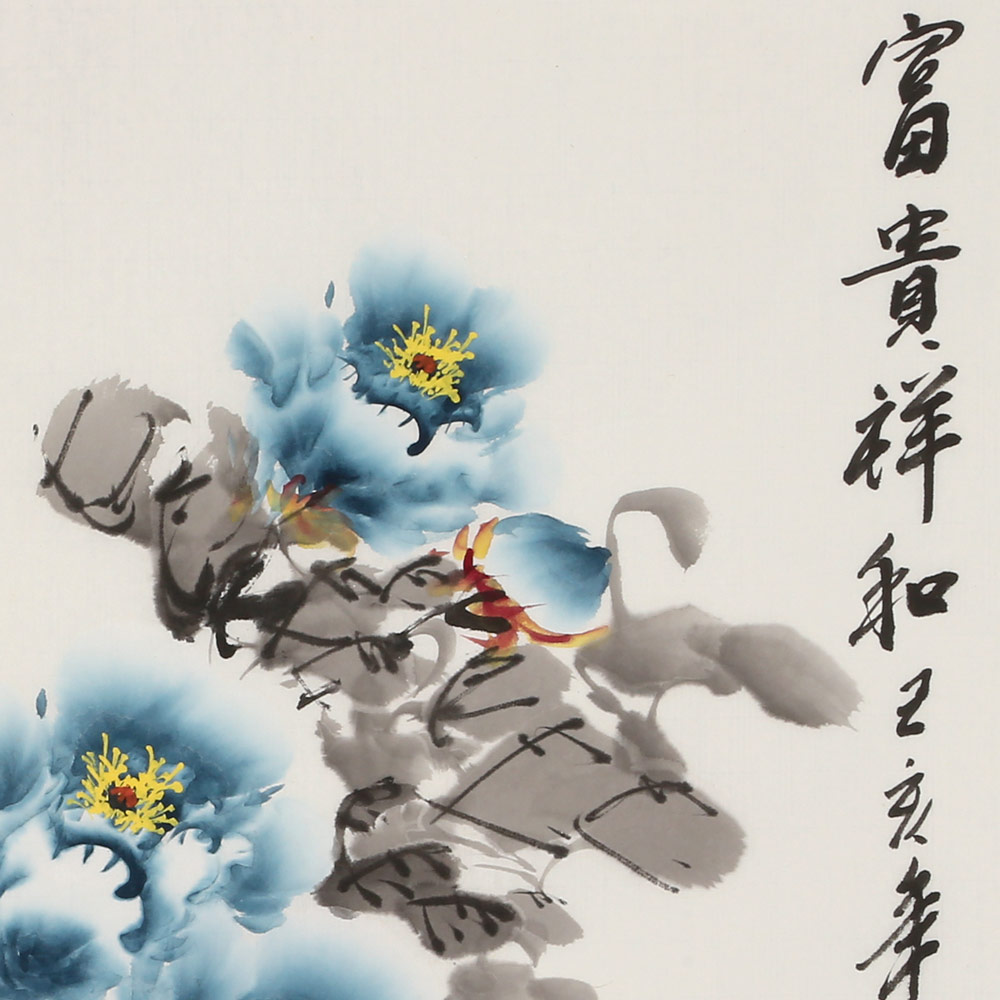 富貴祥和己亥年